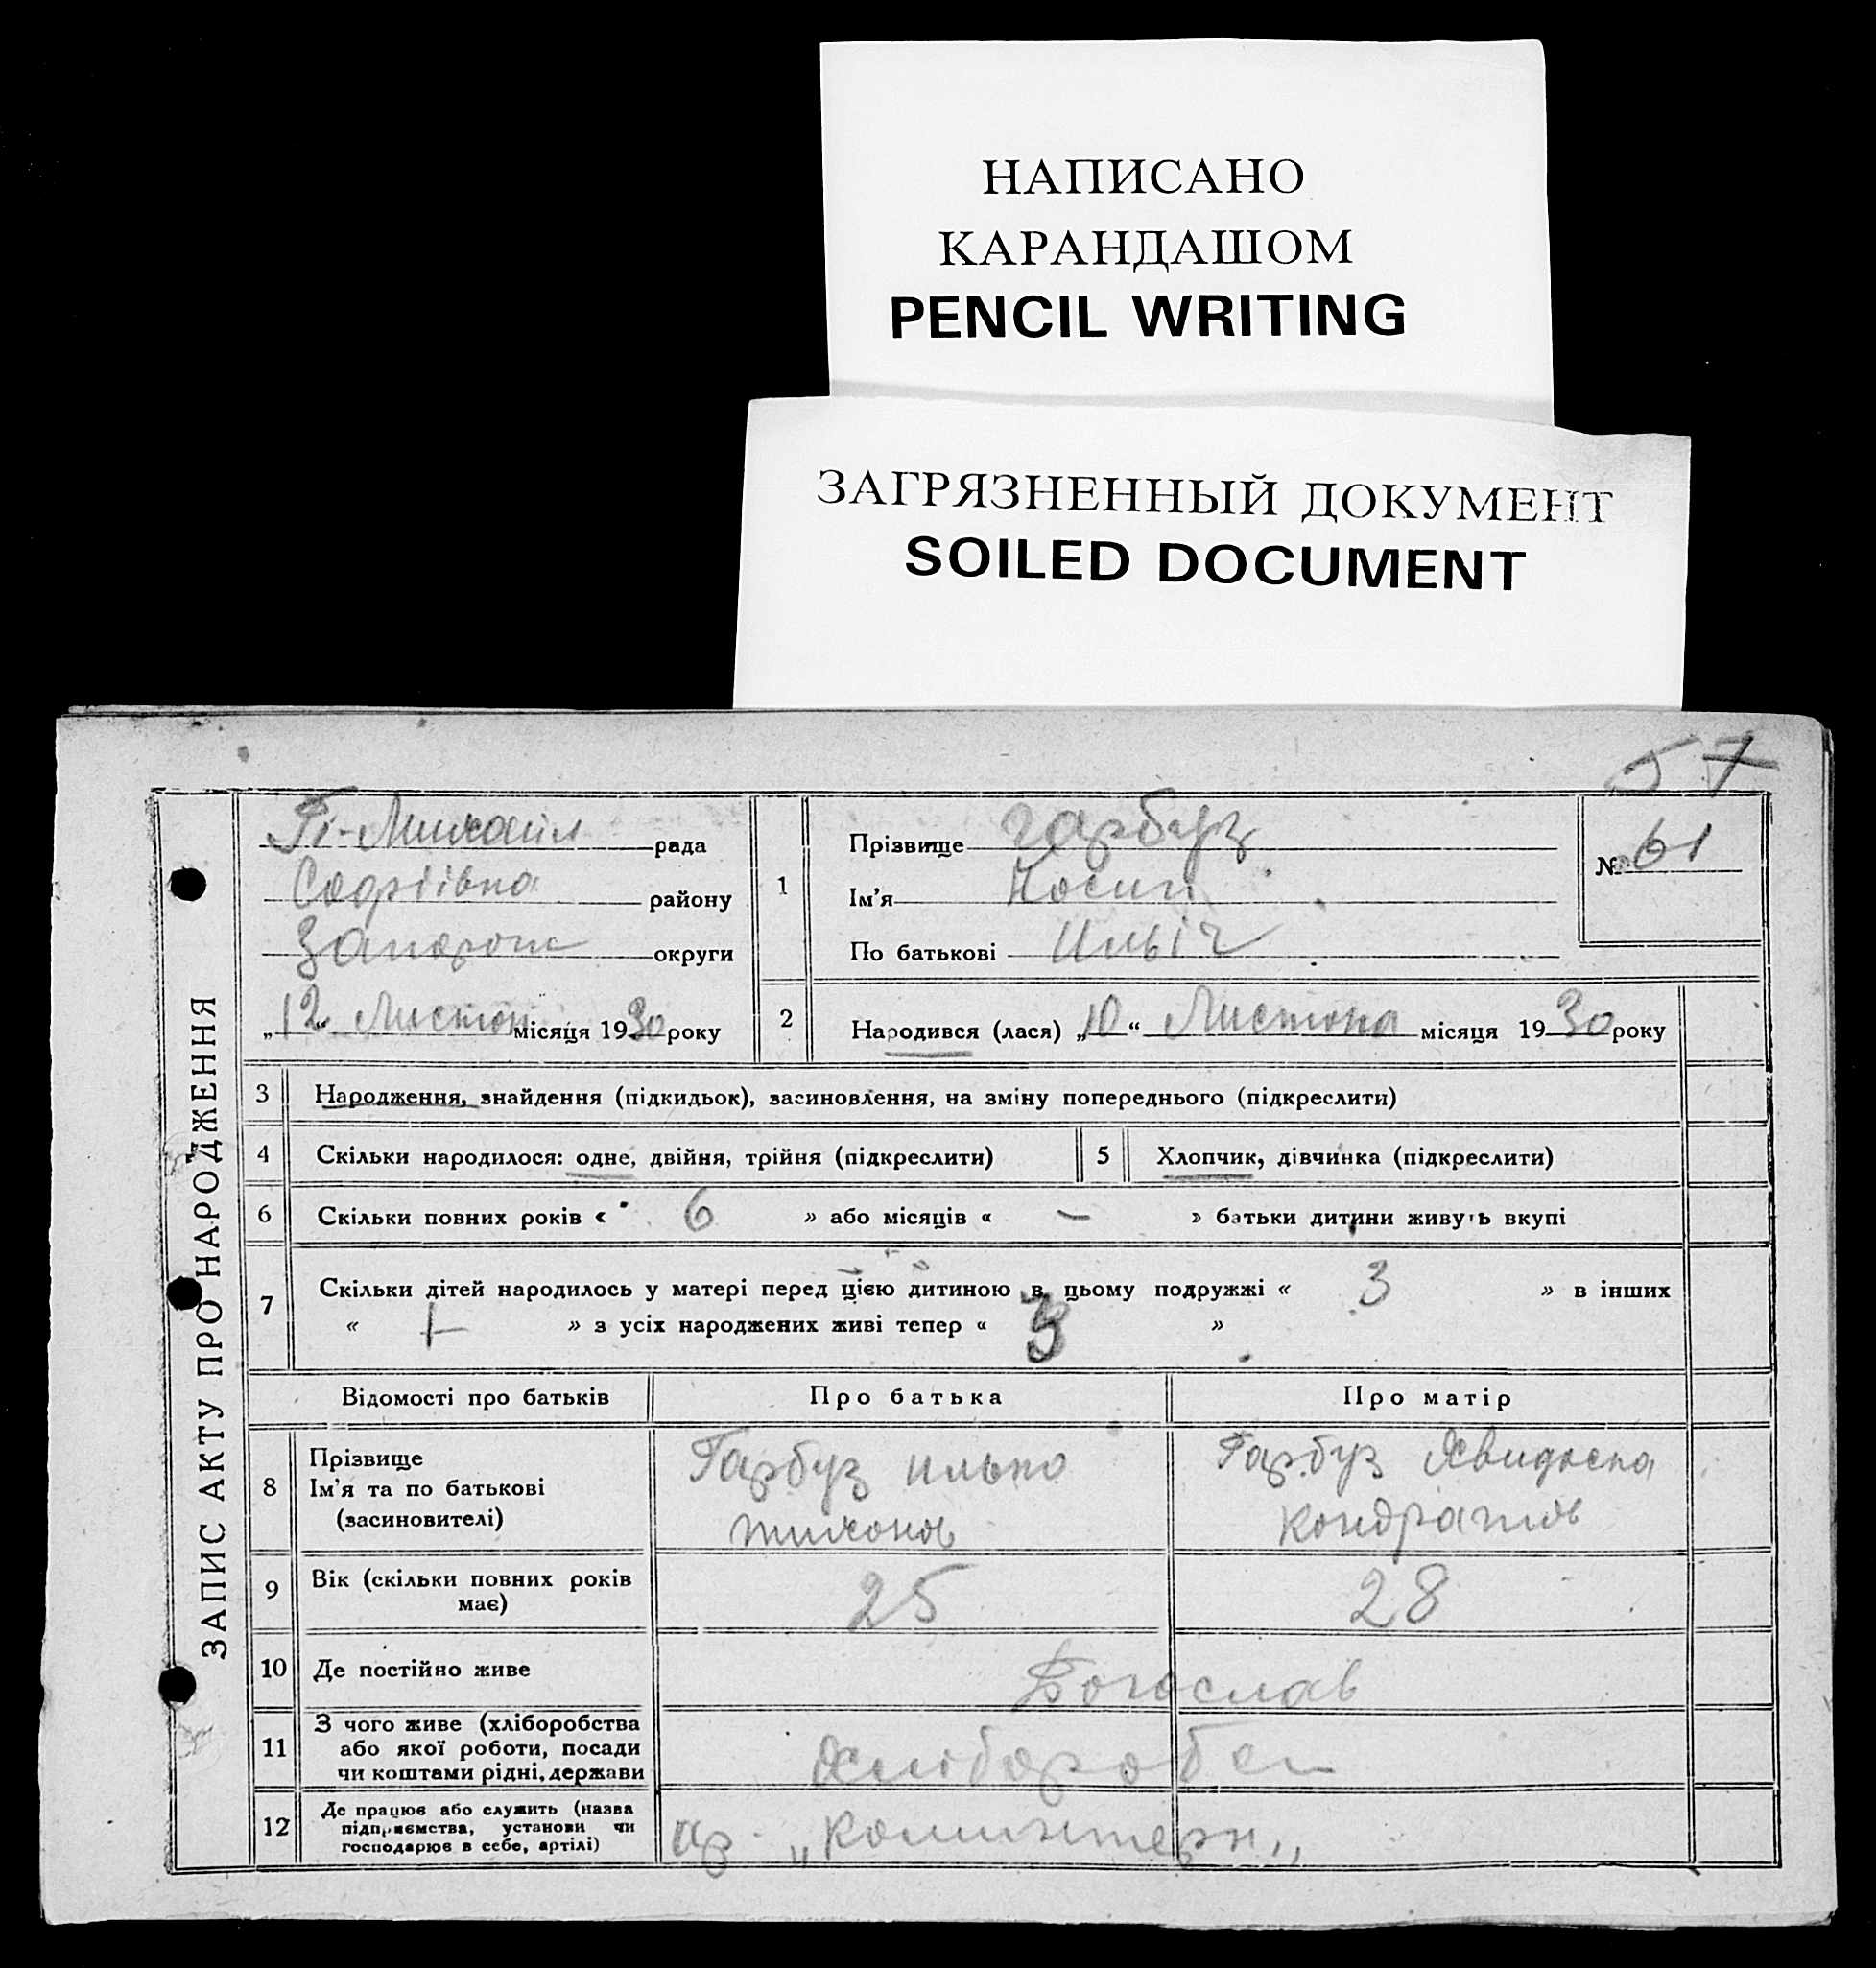 НАПИСАНО
КАРАНДАШОМ
PENCIL WRITING
ЗАГРЯЗНЕННЫЙ ДОКУМЕНТ
SOILED DOCUMENT
57
ЗАПИС АКТУ ПРО НАРОДЖЕННЯ
рада
Софіївка району
Запорож округи
„12“ Листоп місяця 1930 року
1
Прізвище Гарбуз
Ім'я Йосип
По батькові Ильіч
№ 61
2 Народився (лася) „10“ Листопа місяця 1930 року
3 Народження, знайдення (підкидьок), засиновлення, на зміну попереднього (підкреслити)
4 Скільки народилося: одне, двійня, трійня (підкреслити) 5 Хлопчик, дівчинка (підкреслити)
6 Скільки повних років « 6 » або місяців « — » батьки дитини живуть вкупі
7 Скільки дітей народилось у матері перед цією дитиною в цьому подружжі « 3 » в інших
« » з усіх народжених живі тепер « 3 »
Відомості про батьків Про батька Про матір
8 Прізвище
Ім'я та по батькові
(засновителі)
Гарбуз илько
тихонов
Гарбуз Явидоска
кондратів
9 Вік (скільки повних років
має) 25 28
10 Де постійно живе Богослав
11 З чого живе (хліборобства
або якої роботи, посади
чи коштами рідні, держави
Хліборобсп
12 Де працює або служить (назва
підприємства, установи чи
господарює в себе, артілі)
ар. „Коминтерн„